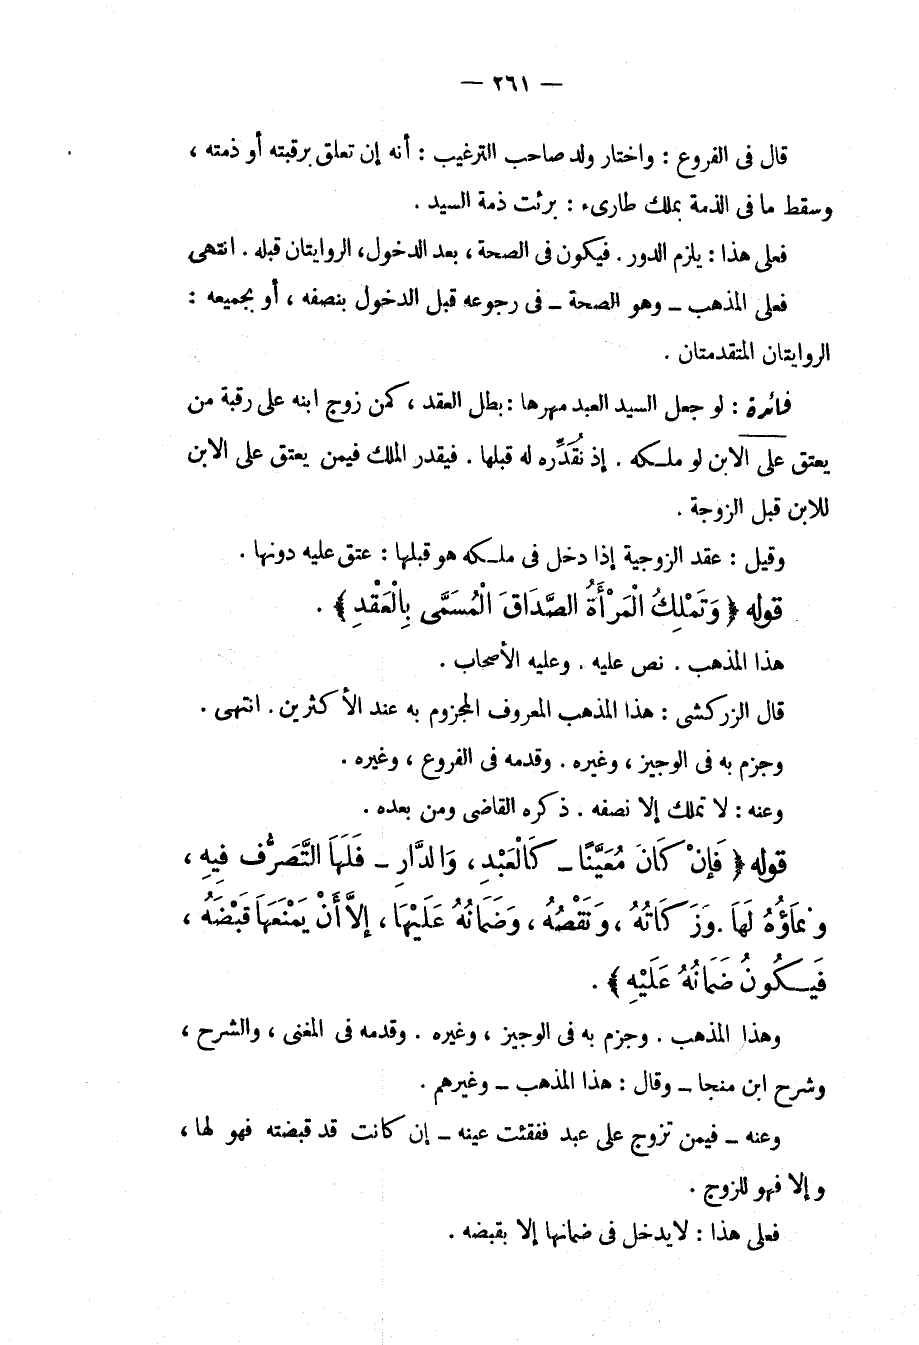 — ٢٦١ —
قال فى الفروع : واختار ولد صاحب الترغيب : أنه إن تعلق برقبته أو ذمته ،
وسقط ما فى الذمة بملك طارىء : برئت ذمة السيد .
فعلى هذا : يلزم الدور . فيكون فى الصحة ، بعد الدخول، الروايتان قبله . انتهى
فعلى المذهب ــ وهو الصحة ــ فى رجوعه قبل الدخول بنصفه ، أو بجميعه :
الروايتان المتقدمتان .
فائدة : لو جعل السيد العبد مهرها : بطل العقد ، كمن زوج ابنه على رقبة من
يعتق على الابن لو ملكه . إذ نُقَدِّره له قبلها . فيقدر الملك فيمن يعتق على الابن
للابن قبل الزوجة .
وقيل : عقد الزوجية إذا دخل فى ملكه هو قبلها : عتق عليه دونها .
قوله ﴿ وَتَمْلِكُ الْمَرْأَةُ الصَّدَاقَ الْمُسَمَّى بِالْعَقْدِ ﴾ .
هذا المذهب . نص عليه . وعليه الأصحاب .
قال الزركشى : هذا المذهب المعروف المجزوم به عند الأكثرين . انتهى .
وجزم به فى الوجيز ، وغيره . وقدمه فى الفروع ، وغيره .
وعنه : لا تملك إلا نصفه . ذكره القاضى ومن بعده .
قوله ﴿ فَإِنْ كَانَ مُعَيَّنًا ــ كَالْعَبْدِ ، وَالدَّارِ ــ فَلَهَا التَّصَرُّف فِيهِ ،
ونماؤُهُ لَهَا . وَزَكَاتُهُ ، وَنَقْصُهُ ، وَضَمَانُهُ عَلَيْهَا ، إلاَّ أَنْ يَمْنَعَهَا قَبْضَهُ ،
فَيَكُونُ ضَمَانُهُ عَلَيْهِ ﴾ .
وهذا المذهب . وجزم به فى الوجيز ، وغيره . وقدمه فى المغنى ، والشرح ،
وشرح ابن منجا ــ وقال : هذا المذهب ــ وغيرهم .
وعنه ــ فيمن تزوج على عبد ففقئت عينه ــ إن كانت قد قبضته فهو لها ،
وإلا فهو للزوج .
فعلى هذا : لايدخل فى ضمانها إلا بقبضه .